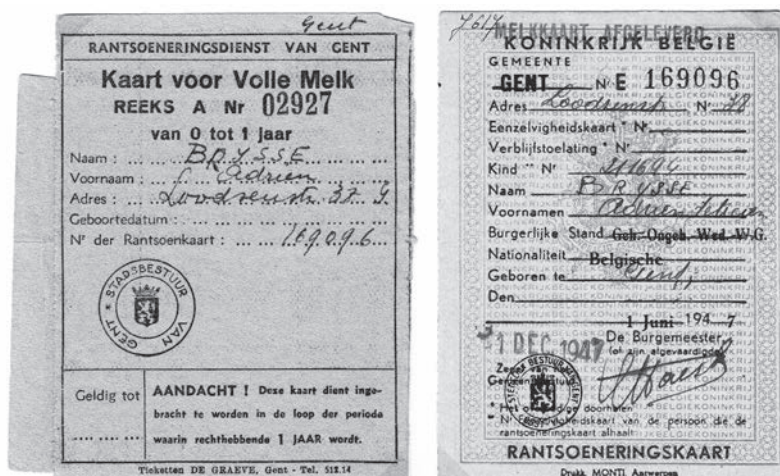 Gent
RANTSOENERINGSDIENST VAN GENT
Kaart voor Volle Melk
REEKS A Nr 02927
van 0 tot 1 jaar
Naam : BRYSSE
Voornaam : Adrien
Adres : Loodsenstr 37 G
Geboortedatum :
Nr der Rantsoenkaart : 169096
STADSBESTUUR VAN GENT
Geldig tot
AANDACHT ! Deze kaart dient inge-
bracht te worden in de loop der periode
waarin rechthebbende 1 JAAR wordt.
Ticketten DE GRAEVE, Gent - Tel. 512.14
7617
MELKKAART AFGELEVERD
KONINKRIJK BELGIË
GEMEENTE
GENT N° E 169096
Adres Loodsenstr N° 38
Eenzelvigheidskaart * Nr
Verblijfstoelating * Nr
Kind ** Nr 211694
Naam BRYSSE
Voornamen Adrien
Burgerlijke Stand Geh. Ongeh. Wed. W.G.
Nationaliteit Belgische
Geboren te Gent
Den
1 Juni 194 7
31 DEC 1947
De Burgemeester
(of zijn afgevaardigde)
Zegel van het
Gemeentebestuur
* Het onnodige doorhalen
** Nr Eenzelvigheidskaart van de persoon die de
rantsoeneringskaart afhaalt
RANTSOENERINGSKAART
Drukk. MONTI, Antwerpen